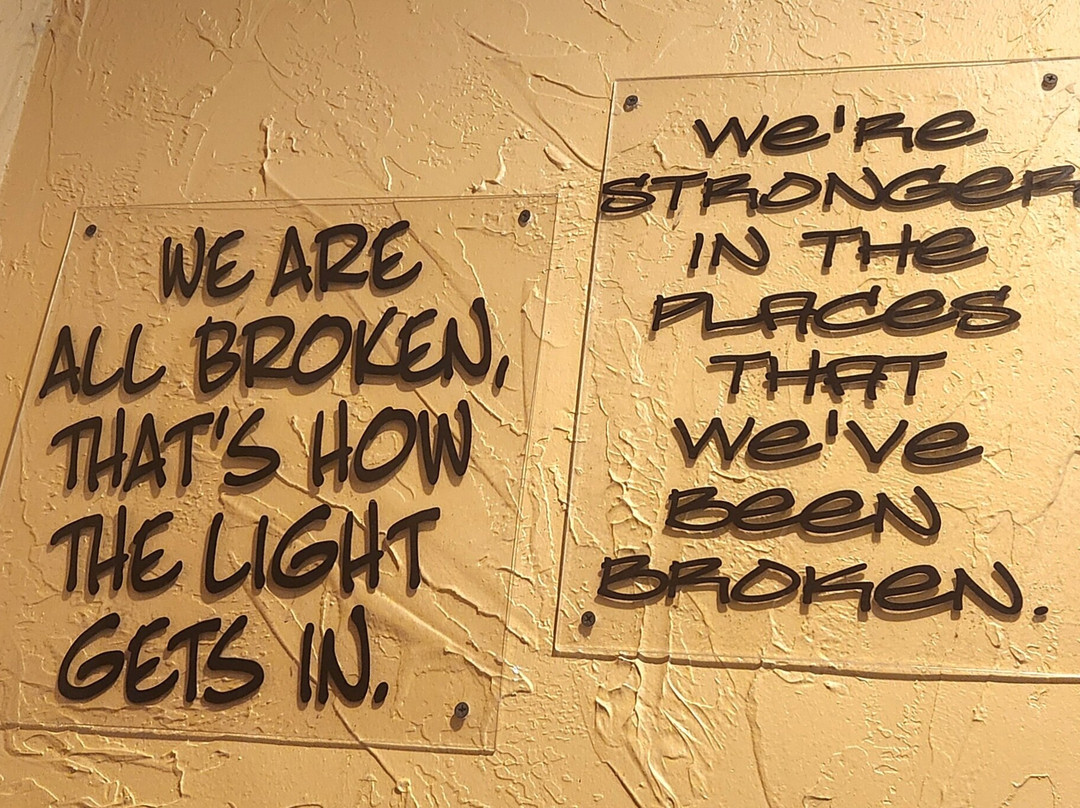 WE ARE
ALL BROKEN,
THAT'S HOW
THE LIGHT
GETS IN.
We're
STRONGER
IN THE
PLACES
THAT
We've
BEEN
BROKEN.